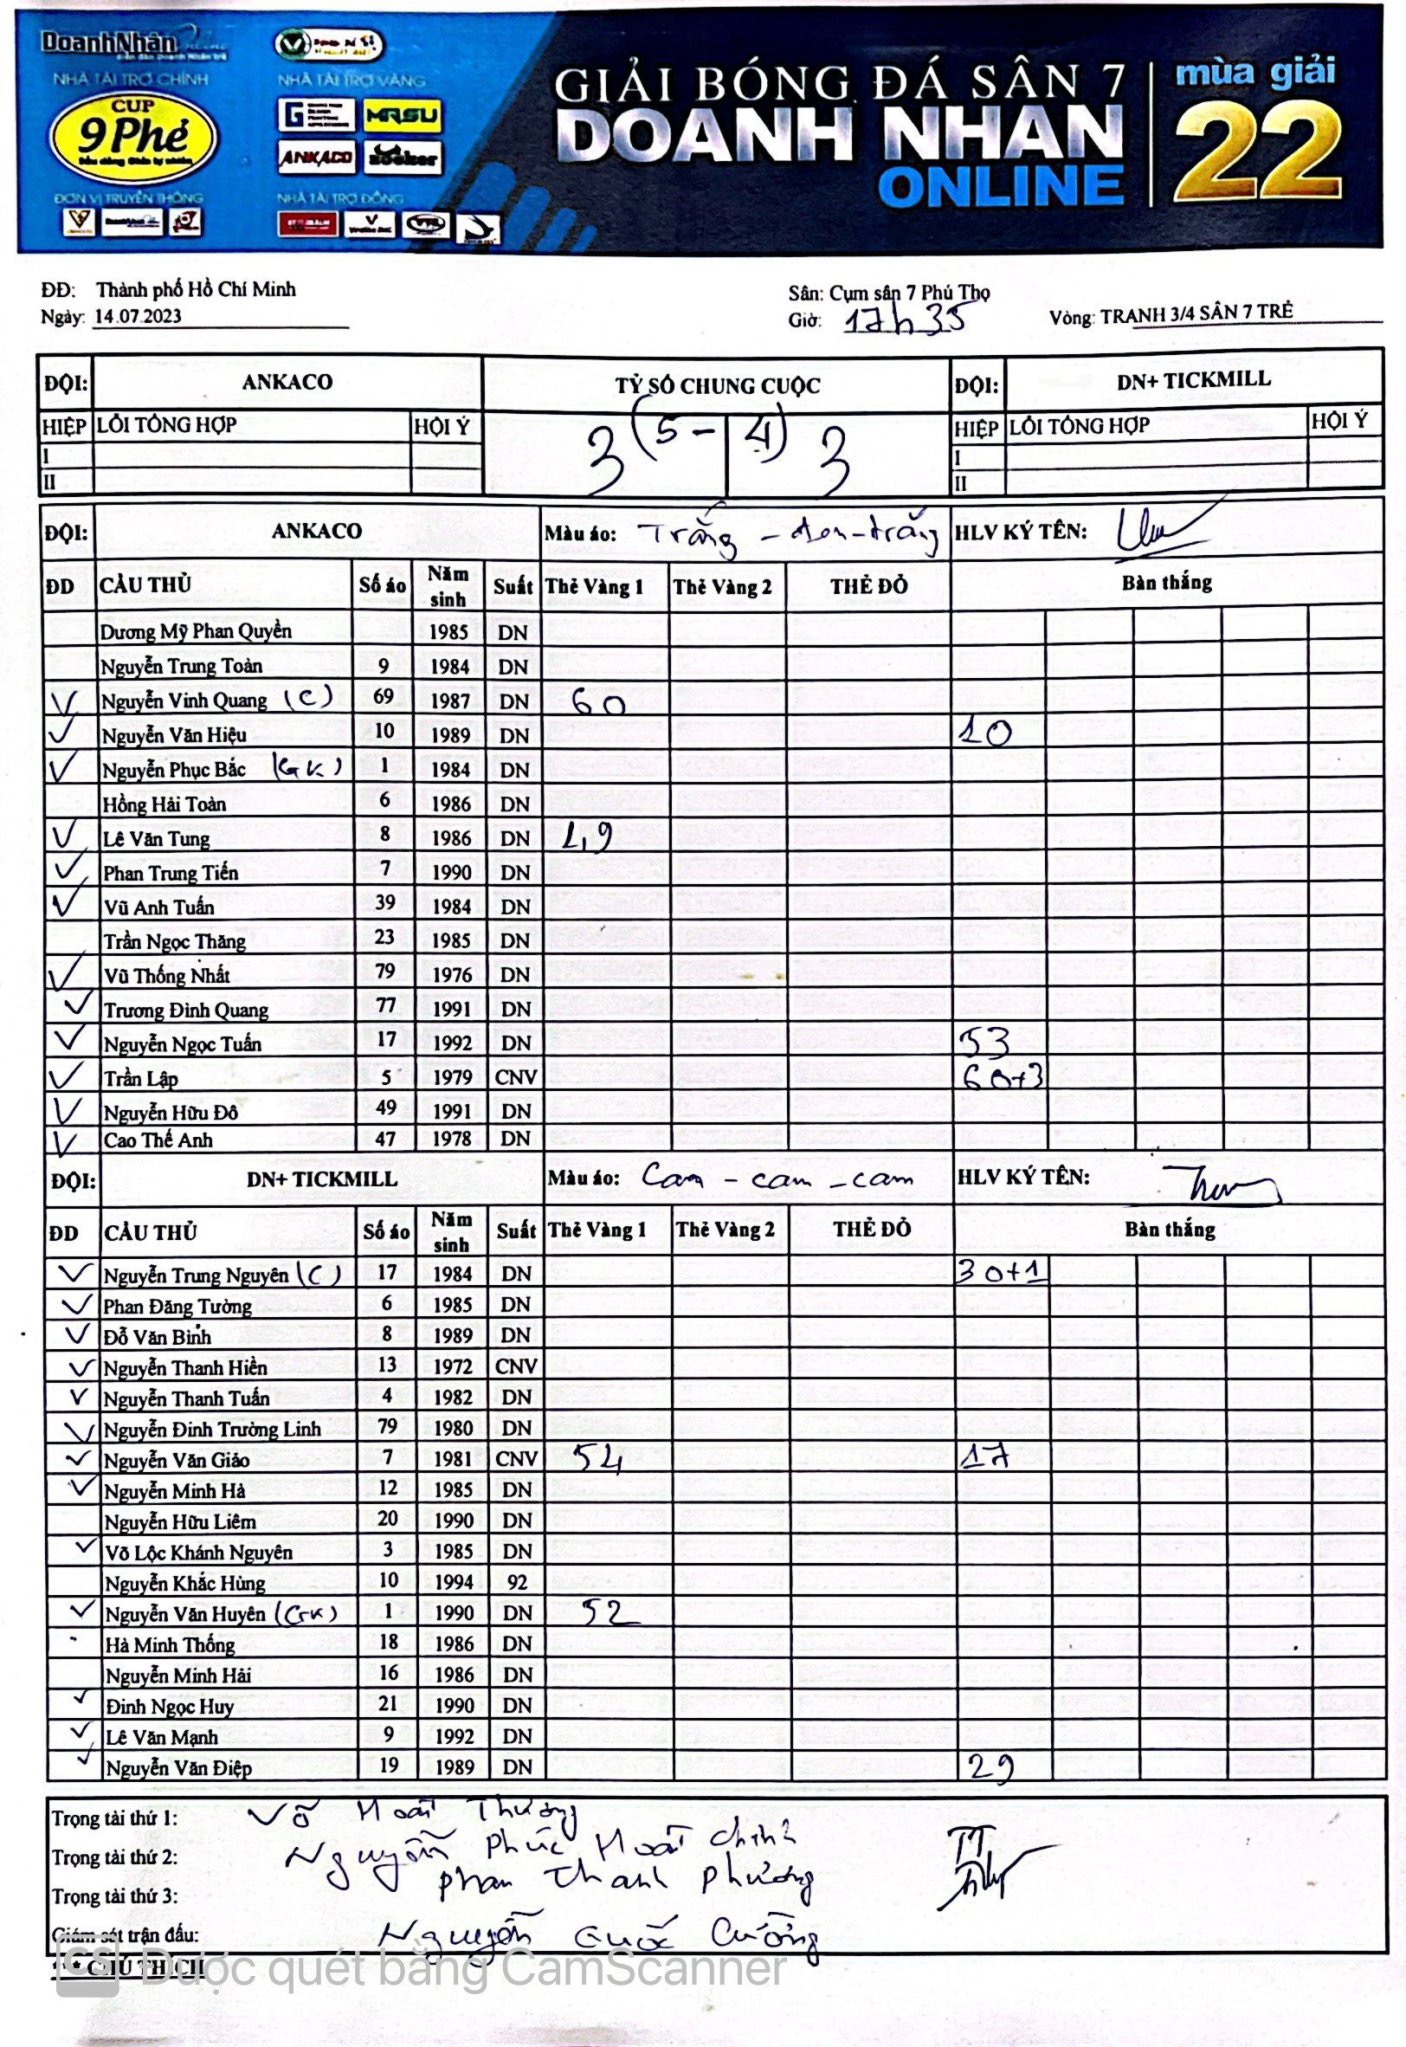 DoanhNhân
NHÀ TÀI TRỢ CHÍNH
NHÀ TÀI TRỢ VÀNG
CUP
9 Phẻ
MRSU
ANKACO
Zocker
ĐƠN VỊ TRUYỀN THÔNG
NHÀ TÀI TRỢ ĐỒNG
GIẢI BÓNG ĐÁ SÂN 7
DOANH NHÂN
ONLINE
mùa giải
22
ĐĐ: Thành phố Hồ Chí Minh
Sân: Cụm sân 7 Phú Thọ
Ngày: 14.07.2023
Giờ: 17h35
Vòng: TRANH 3/4 SÂN 7 TRẺ
ĐỘI: ANKACO TỶ SỐ CHUNG CUỘC ĐỘI: DN+ TICKMILL
HIỆP LỖI TỔNG HỢP HỘI Ý 3 (5 - 4) 3 HIỆP LỖI TỔNG HỢP HỘI Ý
I I
II II
ĐỘI: ANKACO Màu áo: Trắng - đen - trắng HLV KÝ TÊN:
ĐD CẦU THỦ Số áo Năm sinh Suất Thẻ Vàng 1 Thẻ Vàng 2 THẺ ĐỎ Bàn thắng
Dương Mỹ Phan Quyền 1985 DN
Nguyễn Trung Toàn 9 1984 DN
✓ Nguyễn Vinh Quang (C) 69 1987 DN 60
✓ Nguyễn Văn Hiệu 10 1989 DN 10
✓ Nguyễn Phục Bắc (GK) 1 1984 DN
Hồng Hải Toàn 6 1986 DN
✓ Lê Văn Tung 8 1986 DN 49
✓ Phan Trung Tiến 7 1990 DN
✓ Vũ Anh Tuấn 39 1984 DN
Trần Ngọc Thăng 23 1985 DN
✓ Vũ Thống Nhất 79 1976 DN
✓ Trương Đình Quang 77 1991 DN
✓ Nguyễn Ngọc Tuấn 17 1992 DN 53
✓ Trần Lập 5 1979 CNV 60+3
✓ Nguyễn Hữu Đô 49 1991 DN
✓ Cao Thế Anh 47 1978 DN
ĐỘI: DN+ TICKMILL Màu áo: Cam - cam - cam HLV KÝ TÊN:
ĐD CẦU THỦ Số áo Năm sinh Suất Thẻ Vàng 1 Thẻ Vàng 2 THẺ ĐỎ Bàn thắng
✓ Nguyễn Trung Nguyên (C) 17 1984 DN 30+1
✓ Phan Đăng Tường 6 1985 DN
✓ Đỗ Văn Bình 8 1989 DN
✓ Nguyễn Thanh Hiền 13 1972 CNV
✓ Nguyễn Thanh Tuấn 4 1982 DN
✓ Nguyễn Đinh Trường Linh 79 1980 DN
✓ Nguyễn Văn Giáo 7 1981 CNV 54 17
✓ Nguyễn Minh Hà 12 1985 DN
Nguyễn Hữu Liêm 20 1990 DN
✓ Võ Lộc Khánh Nguyên 3 1985 DN
Nguyễn Khắc Hùng 10 1994 92
✓ Nguyễn Văn Huyên (GK) 1 1990 DN 52
Hà Minh Thống 18 1986 DN
Nguyễn Minh Hải 16 1986 DN
✓ Đinh Ngọc Huy 21 1990 DN
✓ Lê Văn Mạnh 9 1992 DN
✓ Nguyễn Văn Điệp 19 1989 DN 29
Trọng tài thứ 1: Võ Hoài Thương
Trọng tài thứ 2: Nguyễn Phúc Hoài Chinh
Trọng tài thứ 3: Phan Thanh Phương
TT
Giám sát trận đấu: Nguyễn Quốc Cường
*** CHÚ THÍCH
CS Được quét bằng CamScanner